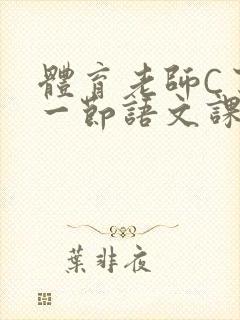 體育老師C
一節語文課
葉非夜